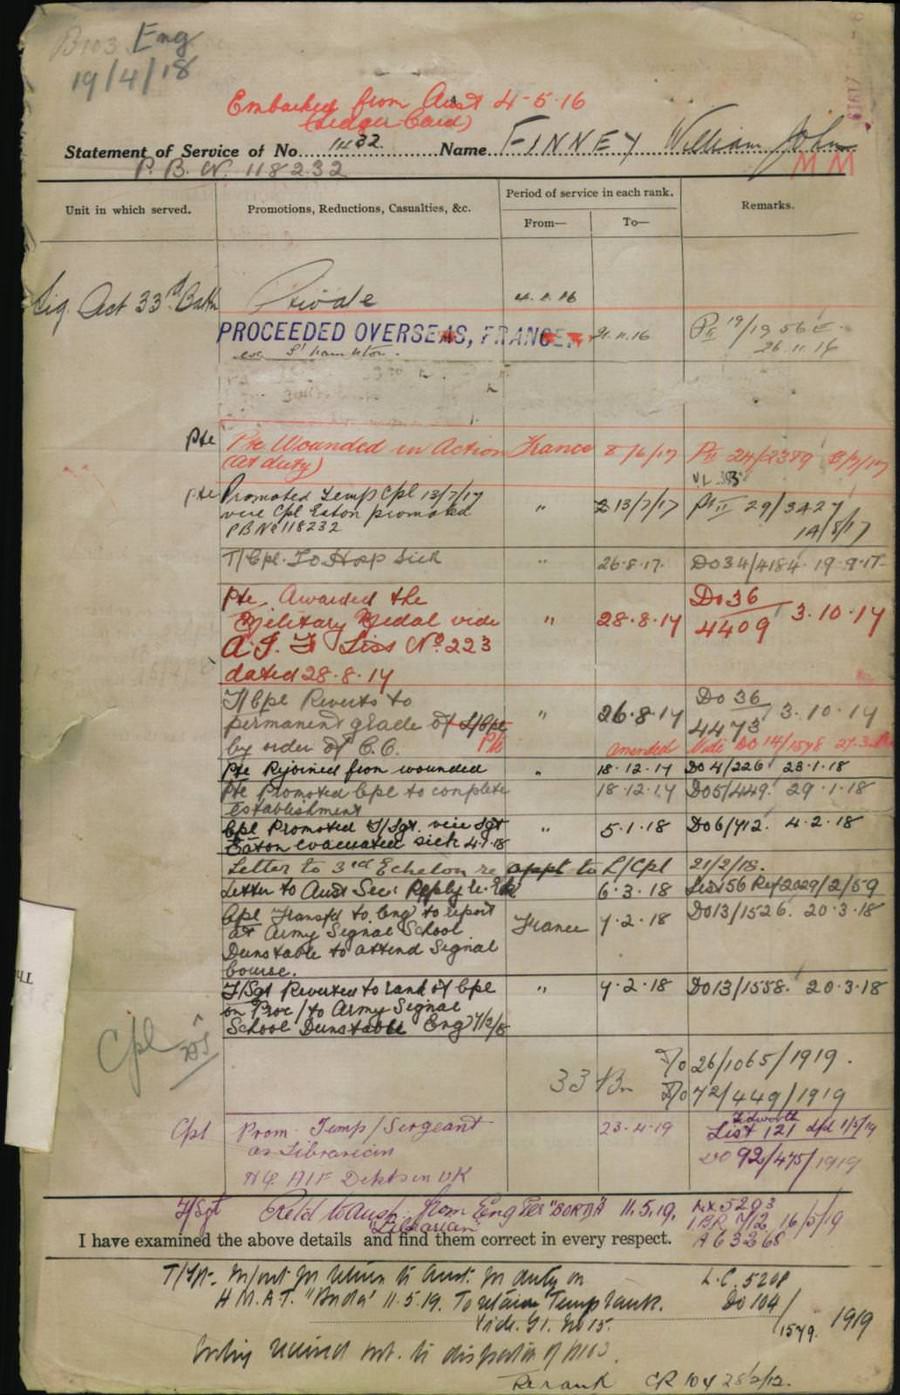 B103 Eng
19/4/18
Embarked from Aust 4-5-16
(Ledger Card)
Statement of Service of No. 1432 Name FINNEY William John
P.B. No. 118232 MM
Unit in which served. Promotions, Reductions, Casualties, &c. Period of service in each rank. Remarks.
From— To—
Sig. Act 33rd Batn Private
PROCEEDED OVERSEAS, FRANCE. 21.11.16
26.11.16
Pte Pte Wounded in Action France 8/6/17
(At duty)
Pte Promoted Temp Cpl 13/7/17 " 13/7/17 Pt II 29/3427
vice Cpl Eaton promoted
PB No 118232
T/Cpl. To Hosp Sick " 26.8.17. DO34/4184 19.9.17
Pte Awarded the DO36
Military Medal vide " 28.8.17 4409 3.10.17
A.I.F List No. 223
dated 28.8.17
T/Cpl Reverts to DO 36
permanent grade of L/Cpl " 26.8.17 4473 3.10.17
by order of C.O. Pte amended Vide DO 14/1578
Pte Rejoined from wounded " 18.12.17 DO4/226 23.1.18
Pte Promoted Cpl to complete 18.12.17 DO5/449. 29.1.18
establishment
Cpl Promoted T/Sgt. vice Sgt " 5.1.18 DO6/712. 4.2.18
Eaton evacuated sick 4.1.18
Letter to 3rd Echelon re appt to L/Cpl 21/2/18.
Letter to Aust Sec. Reply 6.3.18
Cpl Transfd to Eng to report France 7.2.18 DO13/1526. 20.3.18
at Army Signal School
Dunstable to attend Signal
Course.
T/Sgt Reverted to rank of Cpl " 7.2.18 DO13/1558. 20.3.18
on Proc/to Army Signal
School Dunstable Eng 7/2/18
Cpl
33 Bn 26/1065/1919.
72/449/1919
Cpl Prom. Temp/Sergeant 23-4-19 List 121
as Librarian DO 92/475/1919
HQ AIF Depots in UK
T/Sgt Retd to Aust. from Eng per "BORDA" 11.5.19.
"Librarian" 16/5/19
I have examined the above details and find them correct in every respect.
T/Sgt. M/out for return to Aust. for duty on L.C. 5208
H.M.A.T. "Borda" 11.5.19. To retain Temp rank. DO 104/
1579. 1919